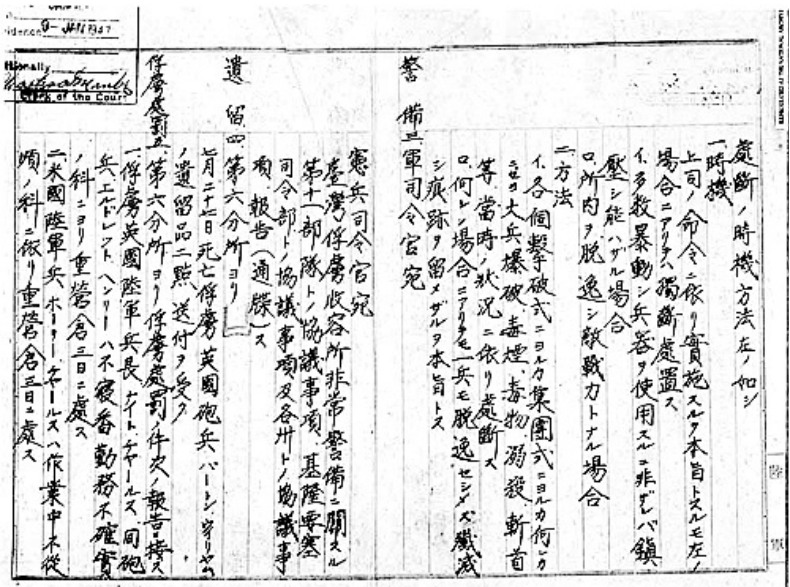 idence
9-JAN 1947
Clerk of the Court
處斷ノ時機方法左ノ如シ
一、時機
上司ノ命令ニ依リ實施スルヲ本旨トスルモ左ノ
場合ニアリテハ獨斷處置ス
イ、多数暴動シ兵器ヲ使用スルニ非ザレバ鎮
壓シ能ハザル場合
ロ、所内ヲ脱逸シ敵戰力トナル場合
二、方法
イ、各個撃破式ニヨルカ集團式ニヨルカ何レカ
ニセヨ大兵爆破、毒煙、毒物、溺殺、斬首
等、當時ノ狀況ニ依リ處斷ス
ロ、何レノ場合ニアリテモ一兵モ脱逸セシメズ殲滅
シ痕跡ヲ留メザルヲ本旨トス
警備 三 軍司令官宛
憲兵司令官宛
臺灣俘虜收容所非常警備ニ關スル
第十一部隊トノ協議事項、基隆要塞
司令部トノ協議事項及各州トノ協議事
項、報告(通牒)ス
遺留 四 第六分所ヨリ
七月二十七日死亡俘虜英國砲兵バートン、ウリヤム
ノ遺留品二點、送付ヲ受ク
俘虜處罰 五 第六分所ヨリ俘虜處罰ノ件次ノ報告ニ接ス
一、俘虜英國陸軍兵長 ナイト、チャールス、同砲
兵エルドレント、ヘンリーハ不寝番勤務不確實
ノ科ニヨリ重營倉三日ニ處ス
二、米國陸軍兵 チャールスハ作業中不從
順ノ科ニ依リ重營倉三日ニ處ス
陸軍